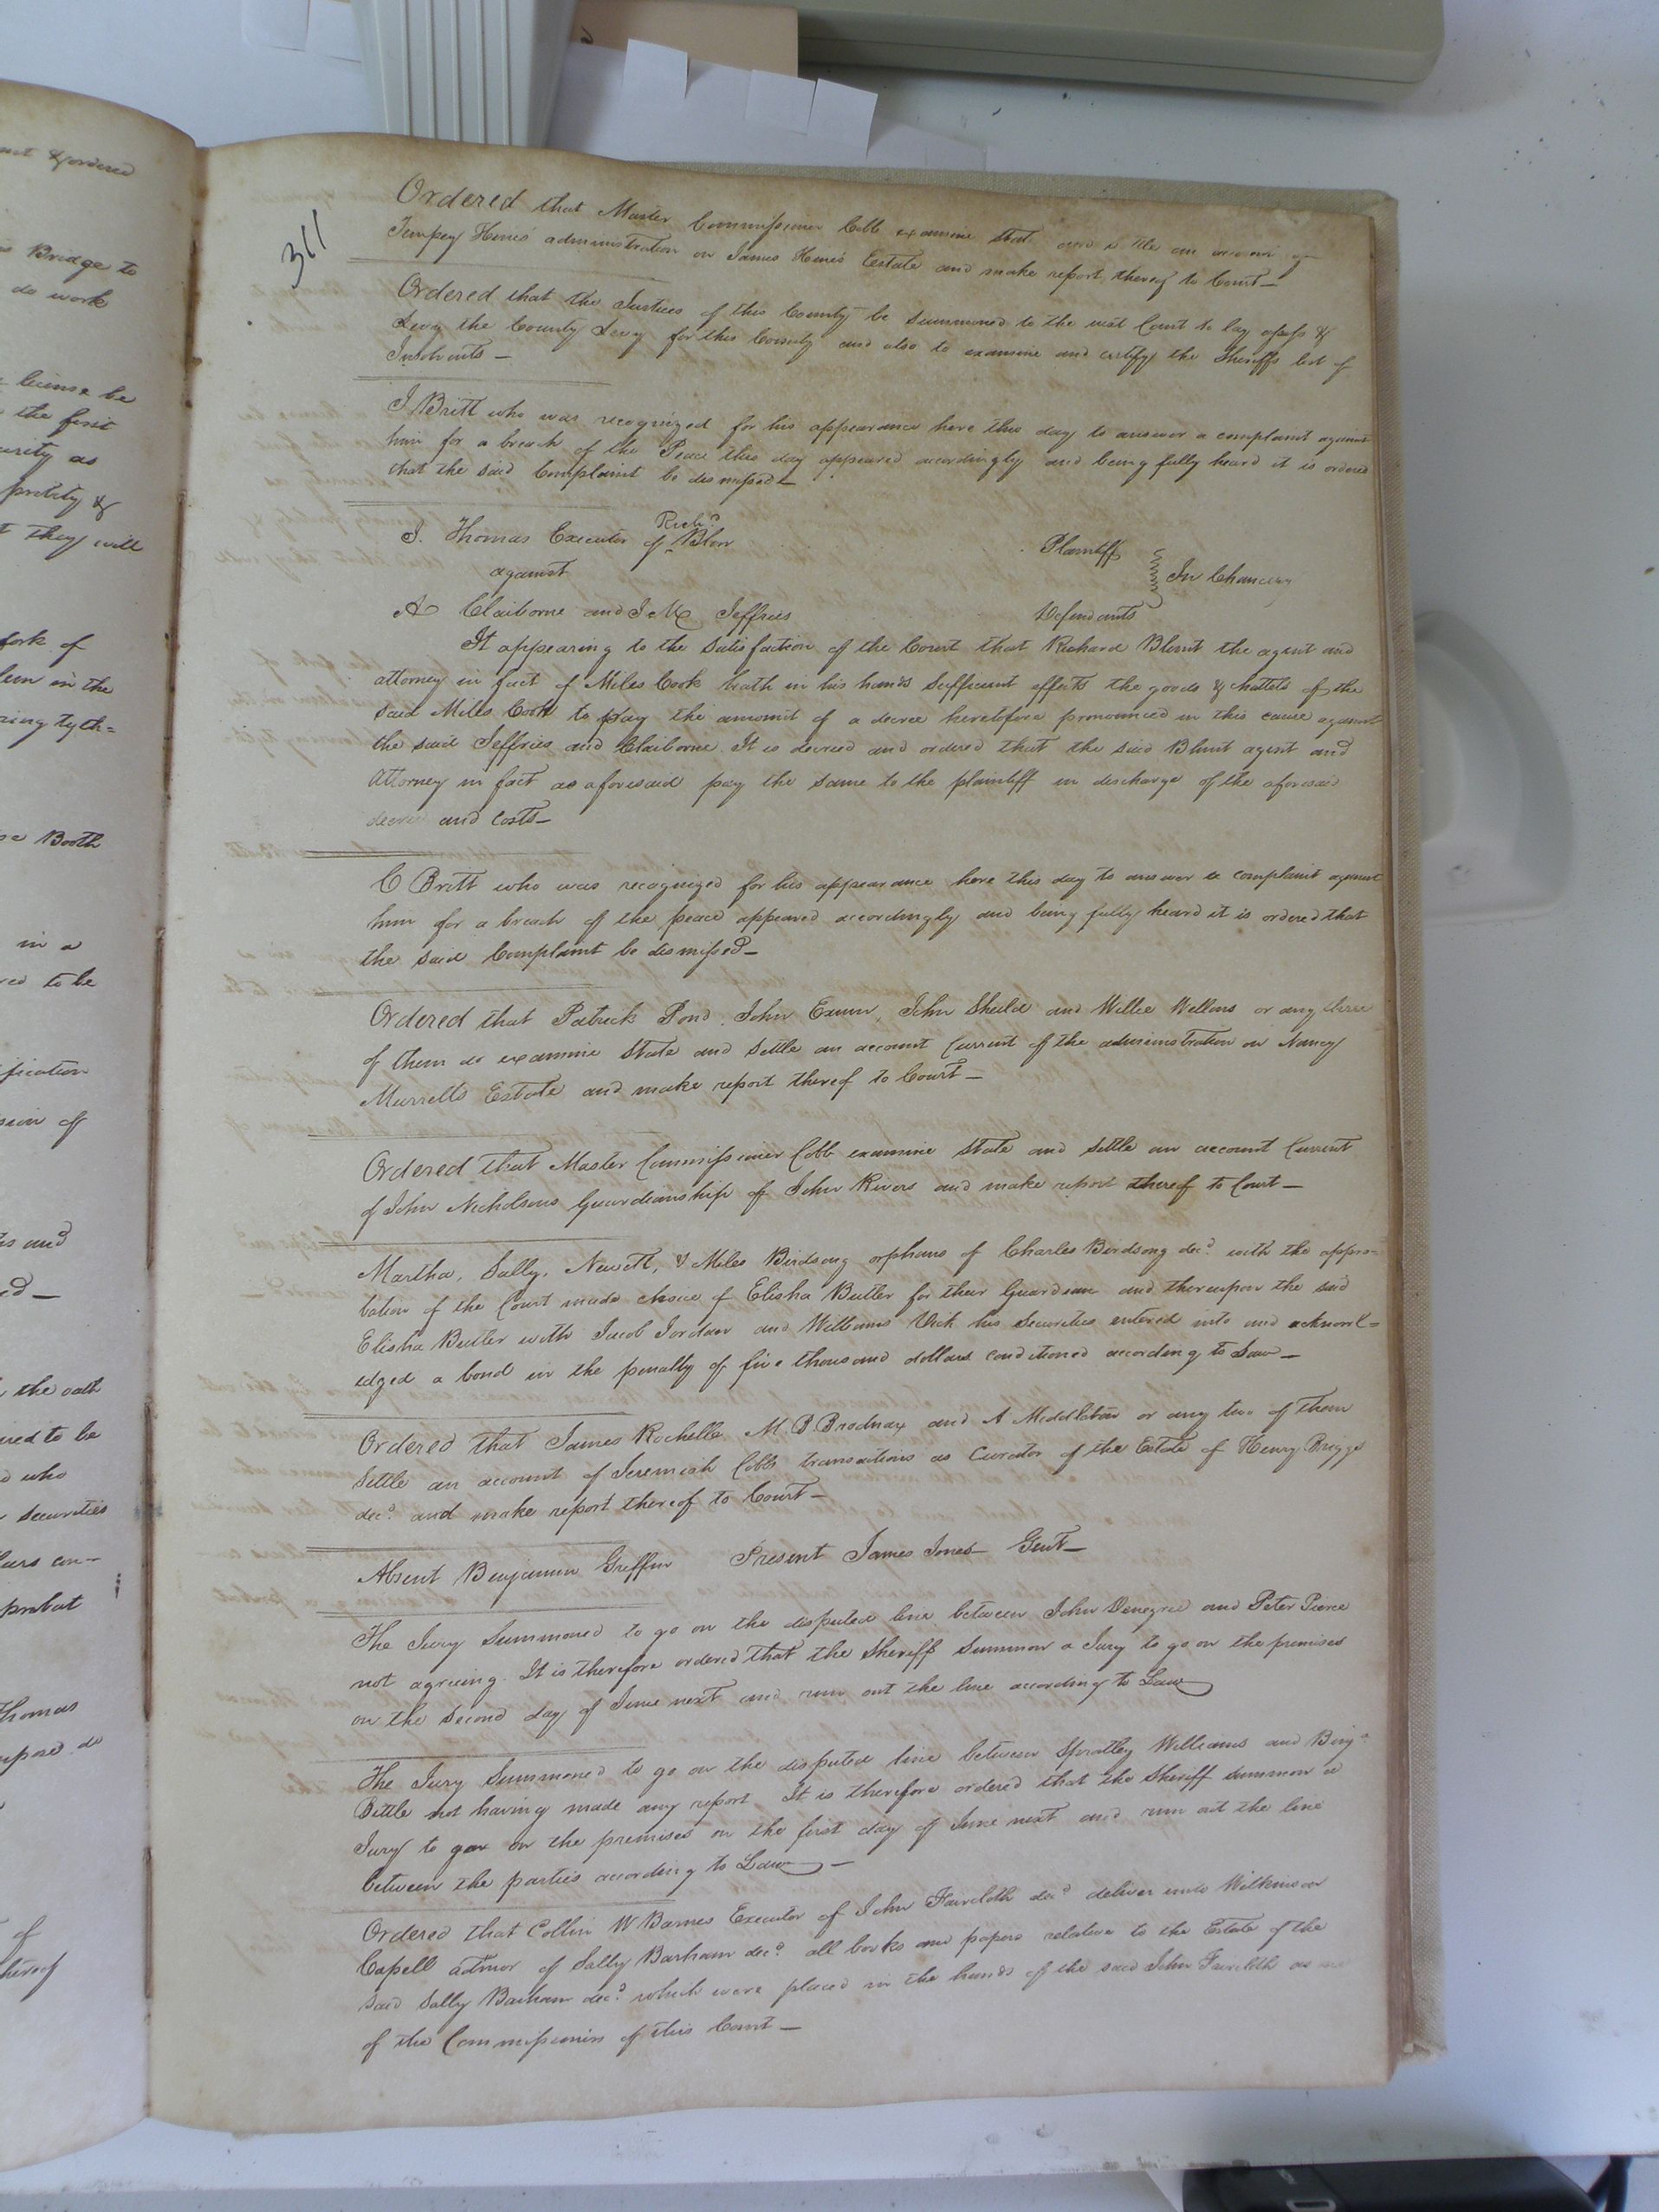 311
Ordered that Master Commissioner Cobb examine State and settle an account of
Tempey Hines administration on James Hines Estate and make report thereof to Court—
Ordered that the Justices of this County be Summoned to the next Court to lay assess &
Levy the County Levy for this County and also to examine and certify the Sheriffs list of
Insolvents —
J Britt who was recognized for his appearance here this day to answer a complaint against
him for a breach of the Peace this day appeared accordingly and being fully heard it is ordered
that the said Complaint be dismissed—
J. Thomas Executor of Richd Blow Plaintiff
against In Chancery
A Claiborne and J Jeffries Defendants
It appearing to the Satisfaction of the Court that Richard Blunt the agent and
attorney in fact of Miles Cook hath in his hands Sufficient effects the goods & chattels of the
said Miles Cook to pay the amount of a decree heretofore pronounced in this cause against
the said Jeffries and Claiborne. It is decreed and ordered that the said Blunt agent and
Attorney in fact as aforesaid pay the same to the plaintiff in discharge of the aforesaid
decree and costs—
C Britt who was recognized for his appearance here this day to answer a complaint against
him for a breach of the peace appeared accordingly and being fully heard it is ordered that
the said Complaint be dismissed—
Ordered that Patrick Pond, John Exum, John Sheild and Willie Wellons or any three
of them do examine State and Settle an account Current of the administration on Nancy
Murrells Estate and make report thereof to Court—
Ordered that Master Commissioner Cobb examine State and Settle an account Current
of John Nicholsons Guardianship of John Rivers and make report thereof to Court—
Martha, Sally, Newitt, & Miles Birdsong orphans of Charles Birdsong decd. with the appro=
bation of the Court made choice of Elisha Butler for their Guardian and thereupon the said
Elisha Butler with Jacob Jordan and Williams Vick his Securities entered into and acknowl=
edged a bond in the penalty of five thousand dollars conditioned according to Law—
Ordered that James Rochelle M. B. Brodnax and A Middleton or any two of them
Settle an account of Jeremiah Cobbs transactions as Curator of the Estate of Henry Briggs
decd. and make report thereof to Court—
Absent Benjamin Griffin Present James Jones Gent—
The Jury Summoned to go on the disputed line between John Denegree and Peter Pierce
not agreeing. It is therefore ordered that the Sheriff Summon a Jury to go on the premises
on the second day of June next and run out the line according to Law
The Jury Summoned to go on the disputed line between Spratley Williams and Benja
Bittle not having made any report It is therefore ordered that the Sheriff summon a
Jury to go on the premises on the first day of June next and run out the line
between the parties according to Law—
Ordered that Collin W Barnes Executor of John Faircloth decd. deliver unto Wilkinson
Capell admor of Sally Barham decd. all books and papers relative to the Estate of the
said Sally Barham decd. which were placed in the hands of the said John Faircloth as one
of the Commissioners of this Court—
Bridge to
do work
license be
the first
as
&
they will
of
in the
Booth
in a
to be
of
and
the oath
to be
who
securities
Thomas
of